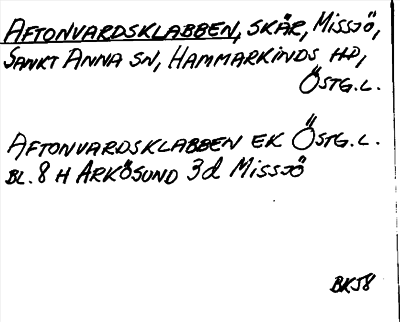 AFTONVARDSKLABBEN, SKÄR, MISSJÖ,
SANKT ANNA SN, HAMMARKINDS HD,
ÖSTG.L.
AFTONVARDSKLABBEN EK ÖSTG.L.
BL. 8 H ARKÖSUND 3d MISSJÖ
BK58